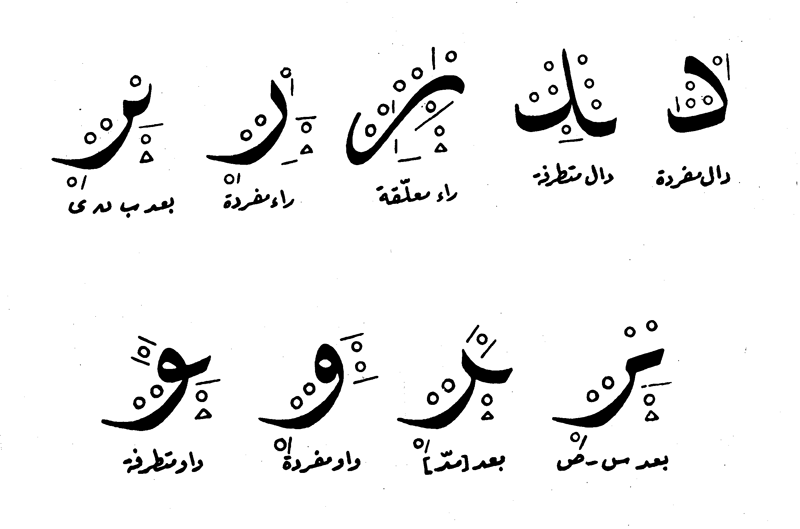 دال مفردة
دال متطرفة
راء معلّقة
راء مفردة
بعد ب ن ى
بعد س - ص
بعد [مدّر]
واو مفردة
واو متطرفة